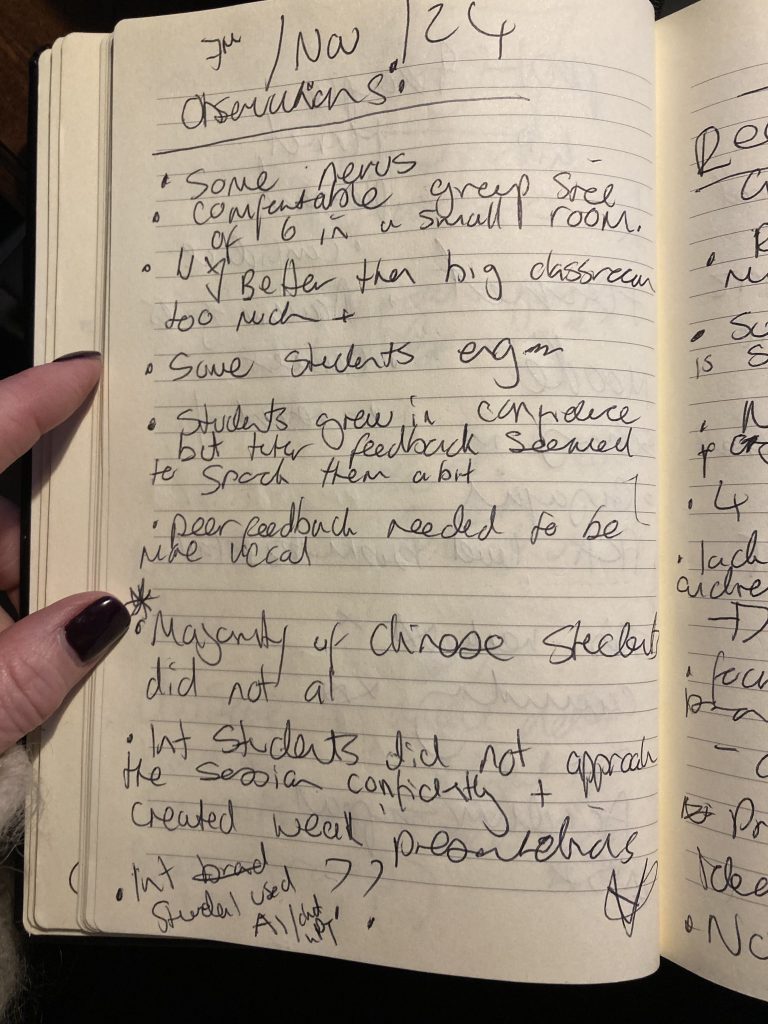 7TH / Nov / 24
Observations:
• Some nervs
• comfortable group size
of 6 in a small room.
• Better then big classroom
too much +
• Some students eng
• Students grew in confidence
but tutor feedback seemed
to spook them a bit
• peer feedback needed to be
more vocal
* • Majority of Chinese Students
did not a
• Int Students did not approach
the session confidently +
created weak presentations
• Int
Student used
AI/chat
GPT
Re
is S
• 4
• lack
• focu
Pr
Idea
• No